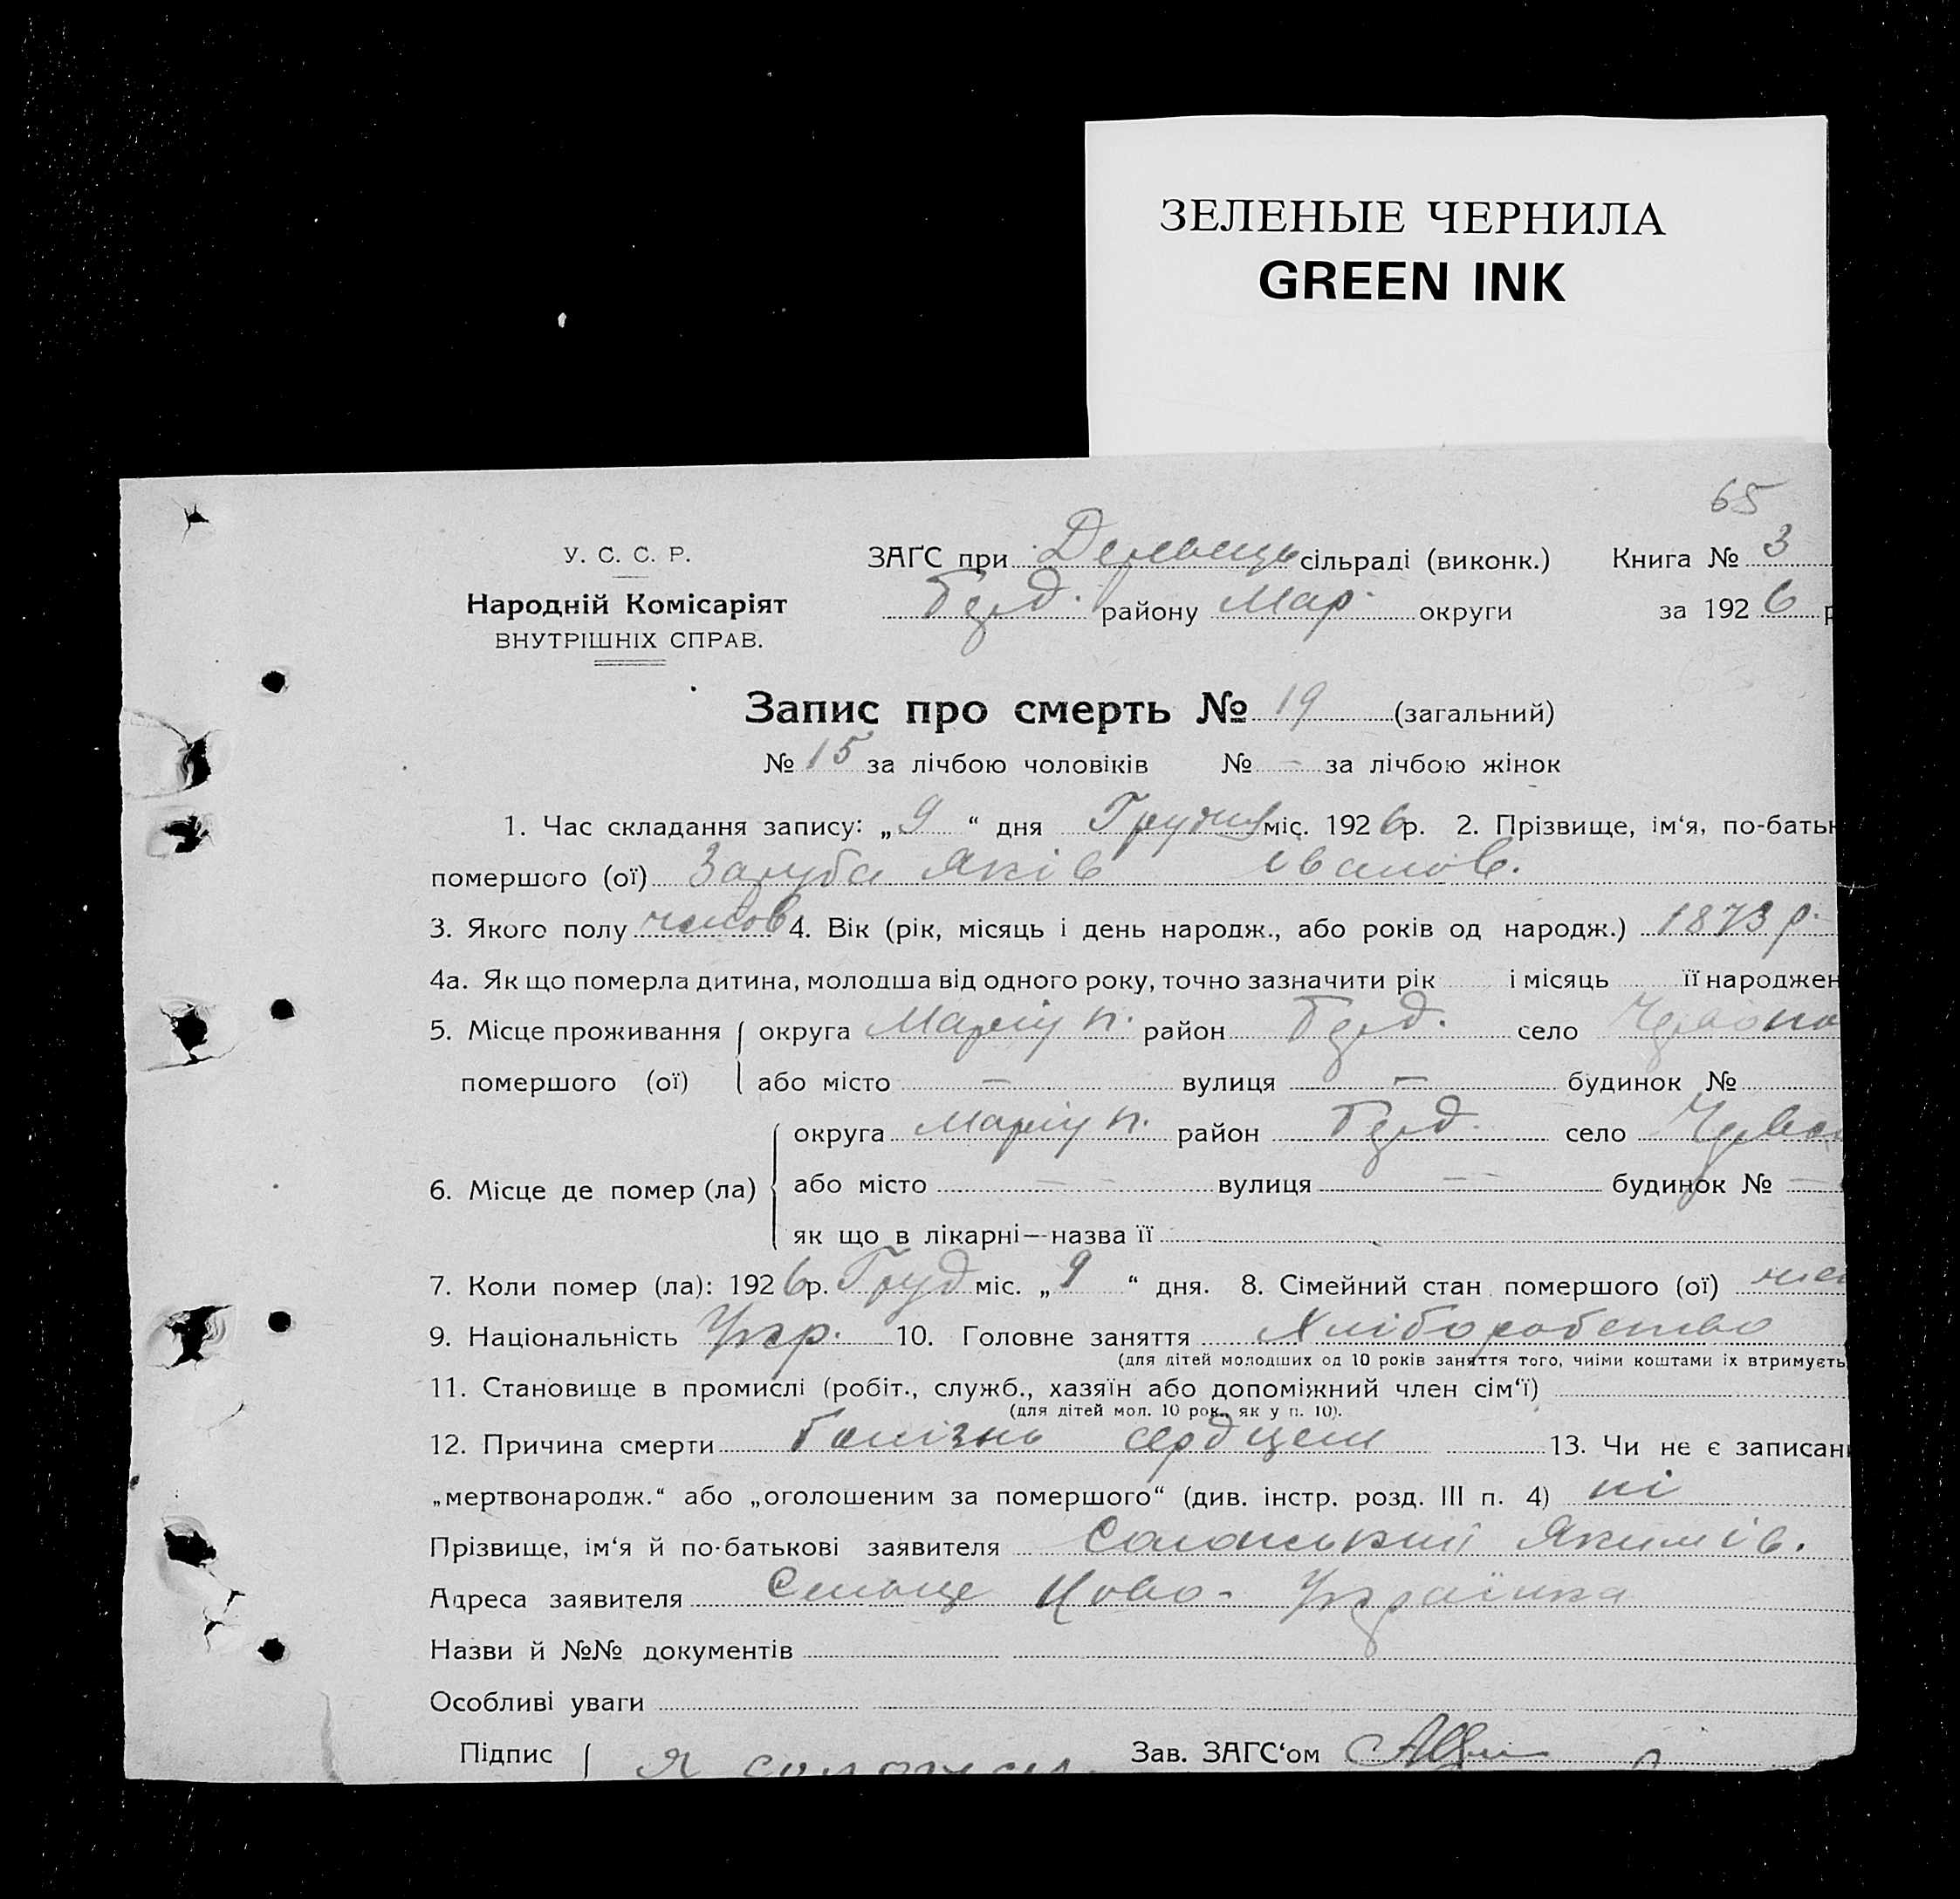 ЗЕЛЕНЫЕ ЧЕРНИЛА
GREEN INK
65
У. С. С. Р.
Народній Комісаріят
ВНУТРІШНІХ СПРАВ.
ЗАҐС при сільраді (виконк.) Книга № 3
району Мар. округи за 1926 р
Запис про смерть № 19 (загальний)
№ 15 за лічбою чоловіків № - за лічбою жінок
1. Час складання запису: „9“ дня Грудня міс. 1926р. 2. Прізвище, ім‘я, по-батьк
помершого (ої) Заруба Яків Іванов.
3. Якого полу чолов 4. Вік (рік, місяць і день народж., або років од народж.) 1873 р.
4а. Як що померла дитина, молодша від одного року, точно зазначити рік і місяць її народжен
5. Місце проживання округа Маріуп. район село Червоно
помершого (ої) або місто — вулиця — будинок №
округа Маріуп. район село
6. Місце де помер (ла) або місто — — вулиця — — будинок № —
як що в лікарні—назва її
7. Коли помер (ла): 1926р. Груд міс. „9“ дня. 8. Сімейний стан помершого (ої)
9. Національність Укр. 10. Головне заняття Хліборобство
(для дітей молодших од 10 років заняття того, чиїми коштами їх втримуєть
11. Становище в промислі (робіт., служб., хазяїн або допоміжний член сім‘ї)
(для дітей мол. 10 рок., як у п. 10).
12. Причина смерти сердцем 13. Чи не є записан
„мертвонародж.“ або „оголошеним за помершого“ (див. інстр. розд. III п. 4) ні
Прізвище, ім‘я й по-батькові заявителя Якимів.
Адреса заявителя Ново-Українка
Назви й №№ документів
Особливі уваги
Підпис Я Зав. ЗАГС‘ом